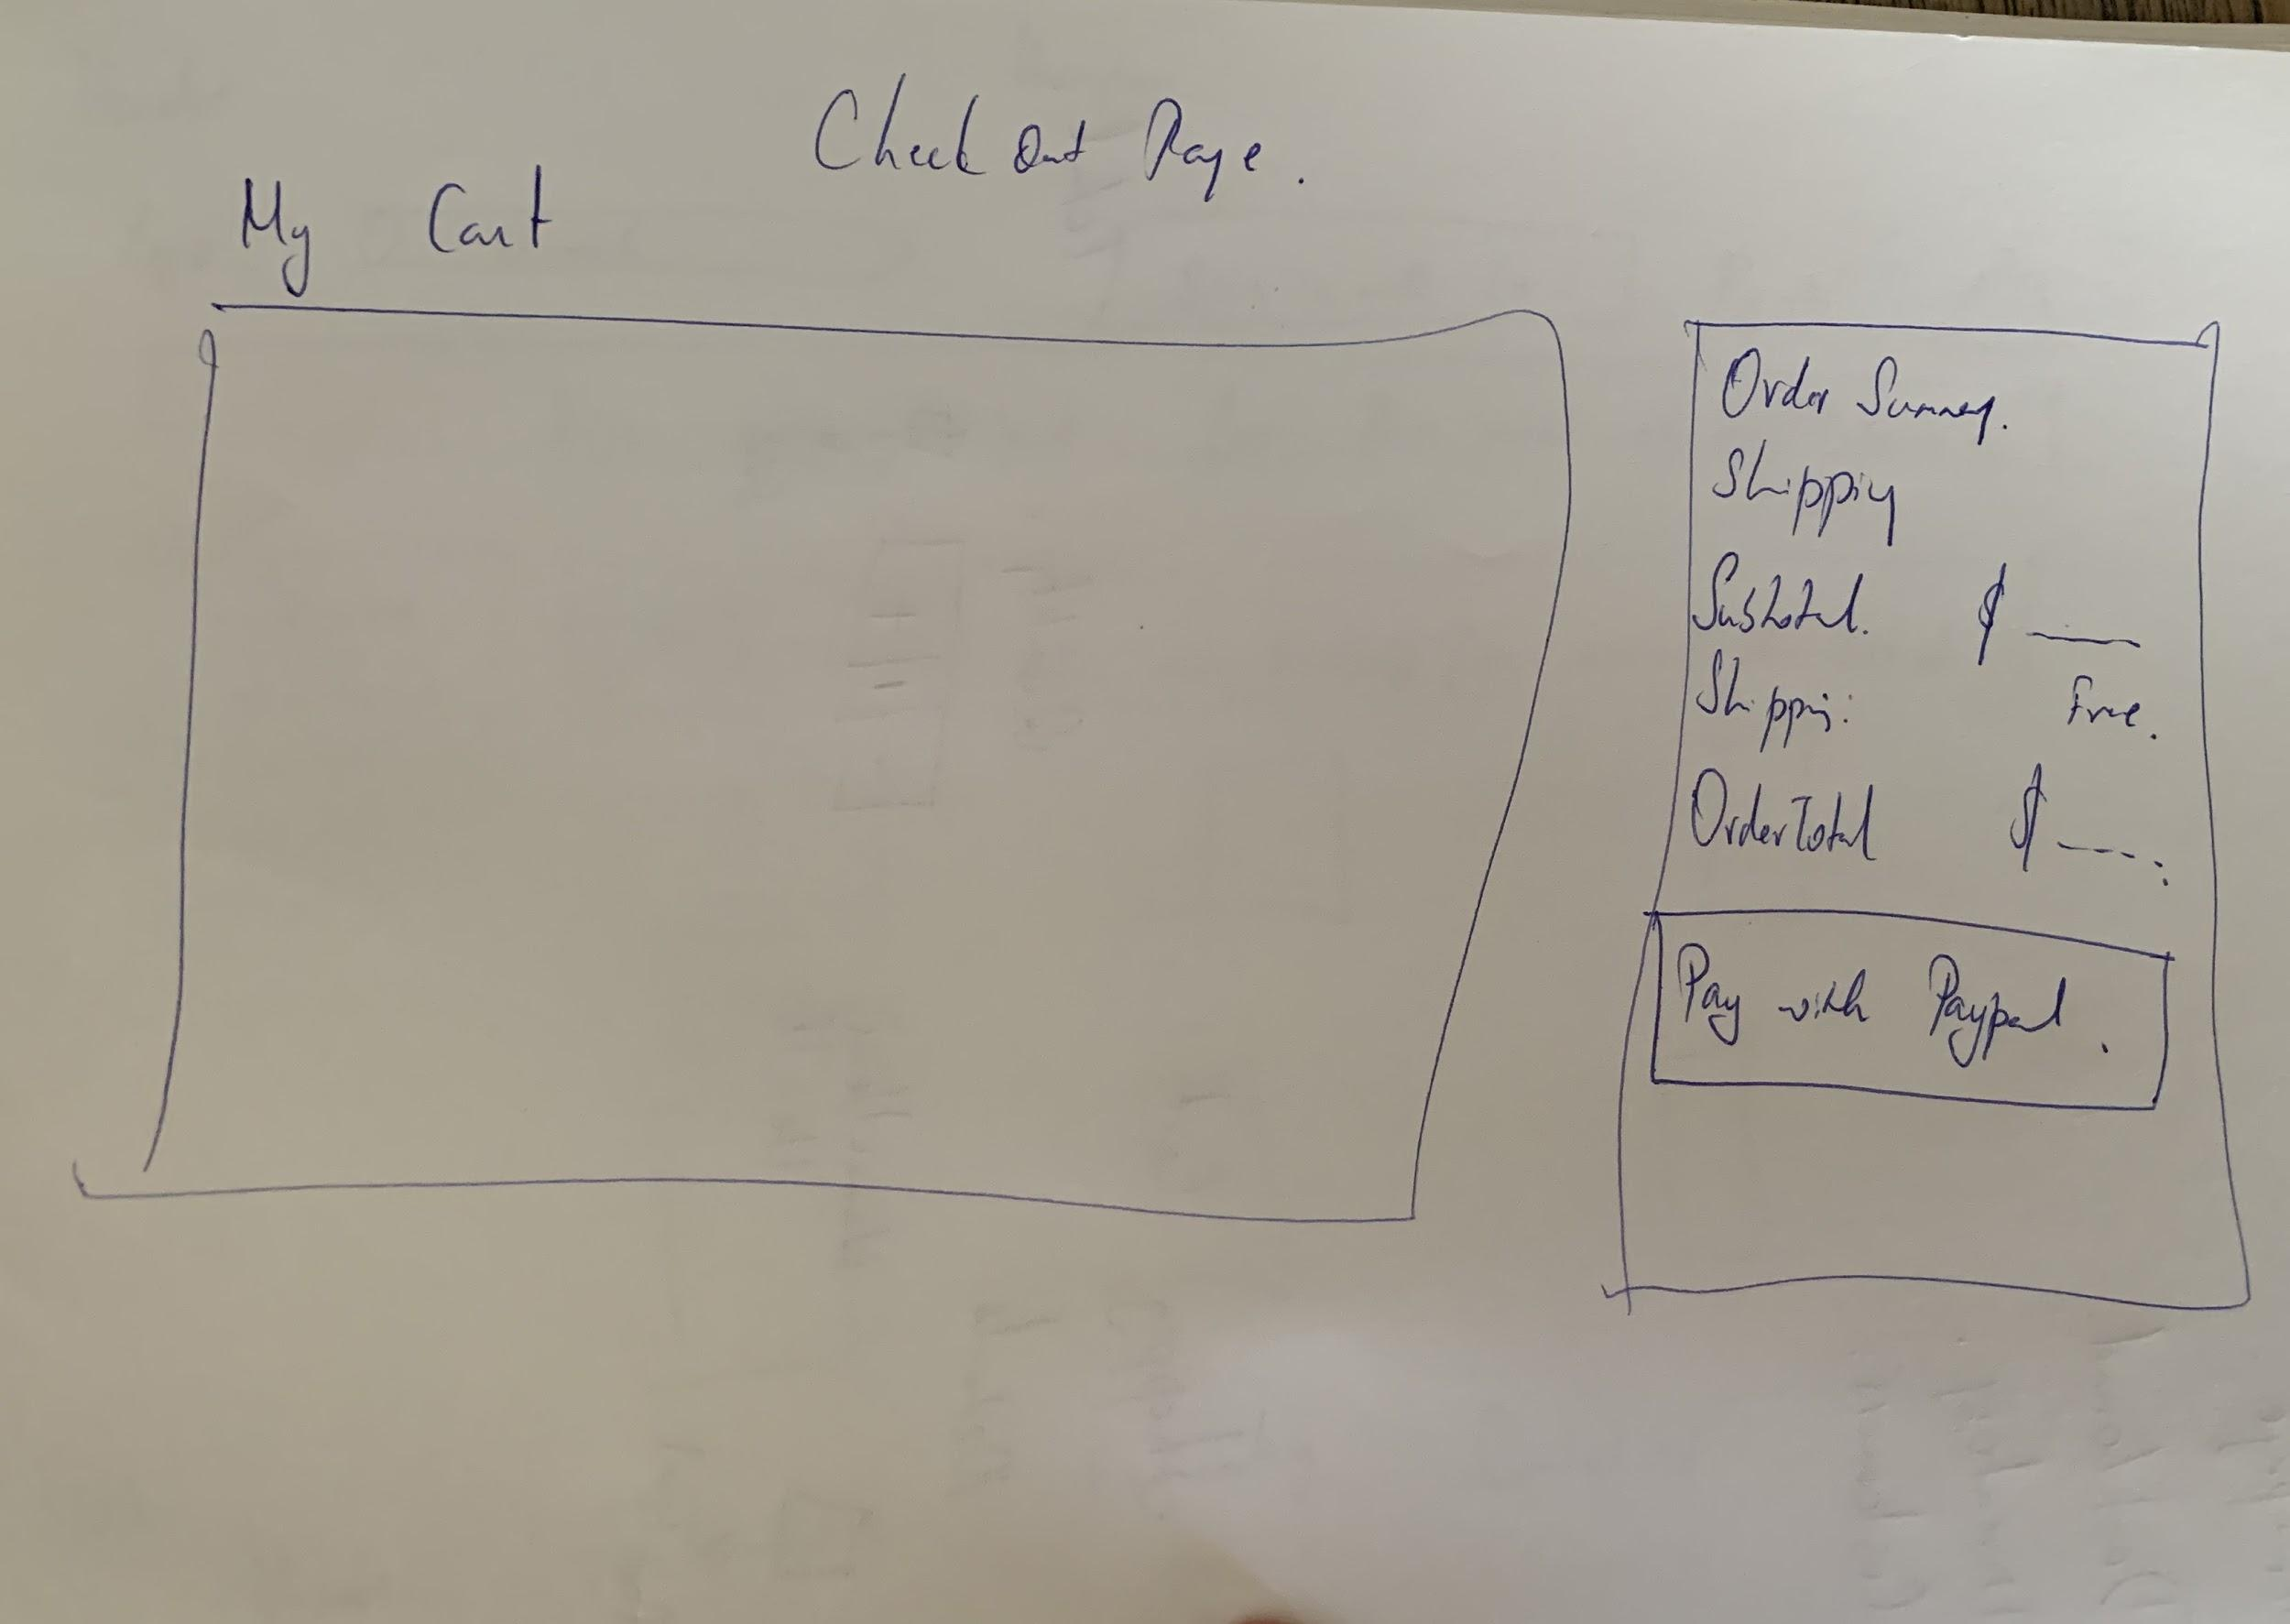 Check Out Page.
My Cart
Order Summary.
Shipping
Subtotal. $ ___
Shipping: Free.
Order Total $ ----.
Pay with Paypal.